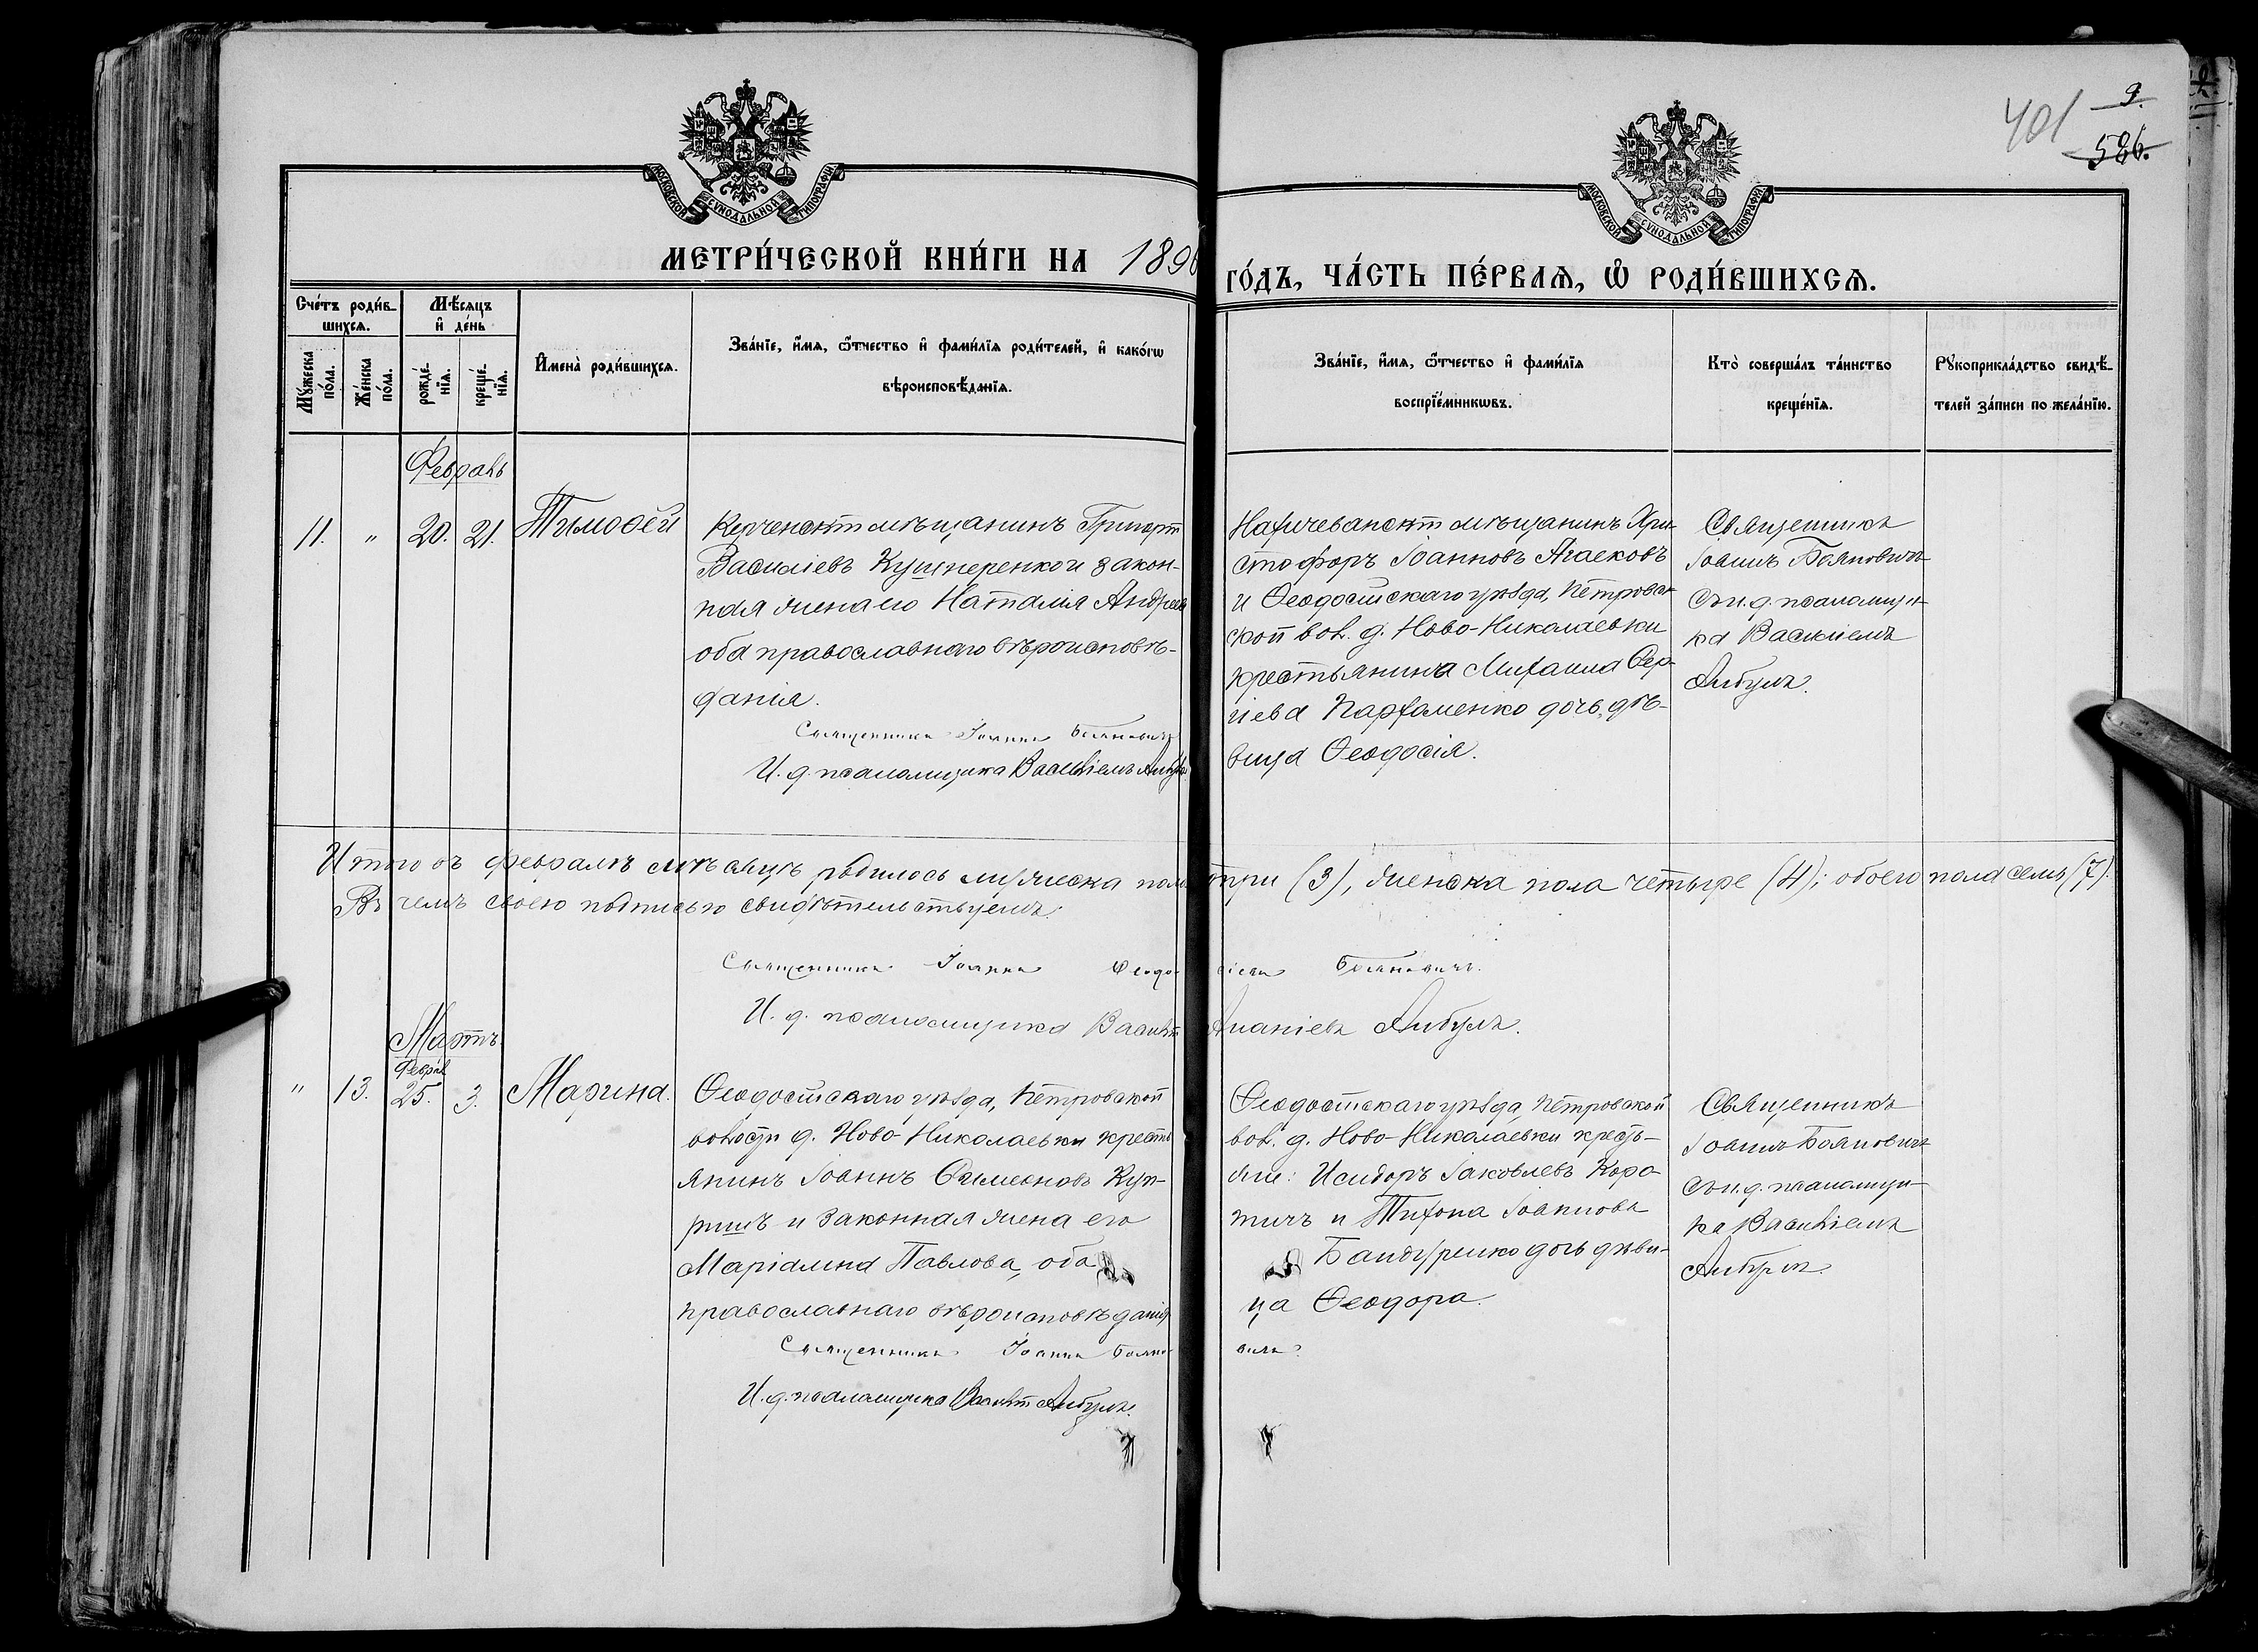 401
9.
526.
МОСКОВСКОЙ СѴНОДАЛЬНОЙ ТИПОГРАФІИ
МОСКОВСКОЙ СѴНОДАЛЬНОЙ ТИПОГРАФІИ
МЕТРИ́ЧЕСКОЙ КНИ́ГИ НА 189
ГО́ДЪ, ЧА́СТЬ ПЕ́РВАѦ, Ѿ РОДИ́ВШИХСѦ.
Сче́тъ роди́в-
шихся.
Мѣ́сяцъ
и҆ де́нь
Мꙋ́жеска
по́ла.
Же́нска
по́ла.
рожде́-
нїѧ.
креще́-
нїѧ.
И҆мена̀ роди́вшихсѧ.
Зва́нїе, и҆́мѧ, ѻ҆́тчество и҆ фами́лїѧ роди́телей, и҆ како́гѡ
вѣроисповѣ́данїѧ.
Зва́нїе, и҆́мѧ, ѻ҆́тчество и҆ фами́лїѧ
воспрїе́мникѡвъ.
Кто̀ соверша́лъ та́инство
креще́нїѧ.
Рꙋкоприкла́дство свидѣ́-
телей за́писи по жела́нїю.
Февраль
11. " 20. 21. Тимоѳей
Керченскій мѣщанинъ Григорій
Васильевъ Кушперенко и закон-
ная жена его Наталія Андреева
оба православнаго вѣроисповѣ-
данія.
Священникъ Іоаннъ Бояновичъ
И. д. псаломщика Василій
Нахичеванскій мѣщанинъ Хри-
стофоръ Іоанновъ Агасковъ
и Ѳеодосійскаго уѣзда, Петров-
ской вол. д. Ново-Николаевки
крестьянина Михаила Сер-
гіева Парфоменко дочь, дѣ-
вица Ѳеодосія.
Священникъ
Іоаннъ Бояновичъ
съ и. д. псаломщи-
ка Василіемъ
Итого въ февралѣ мѣсяцѣ родилось мужеска пола три (3), женска пола четыре (4); обоего пола семь (7).
Въ чемъ своею подписью свидѣтельствуемъ:
Священникъ Іоаннъ Ѳеодосіевъ Бояновичъ.
И. д. псаломщика Василій Ананіевъ
Мартъ
Феврал
" 13. 25. 3. Марина.
Ѳеодосійскаго уѣзда, Петровской
волости д. Ново-Николаевки кресть-
янинъ Іоаннъ Симеоновъ Куп-
ришъ и законная жена его
Маріамна Павлова, оба
православнаго вѣроисповѣданія
Священникъ Іоаннъ Бояновичъ
И. д. псаломщика Василій
Ѳеодосійскаго уѣзда, Петровской
вол. д. Ново-Николаевки кресть-
яне: Исидоръ Іаковлевъ Коро-
тичъ и Тихона Іоаннова
Бандуренко дочь дѣви-
ца Ѳеодора.
Священникъ
Іоаннъ Бояновичъ
съ и. д. псаломщи-
ка Василіемъ